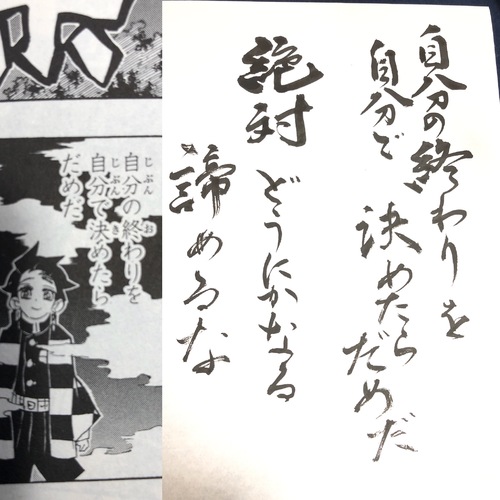 自分の終わりを
自分で決めたら
だめだ
自分の終わりを
自分で決めたらだめだ
絶対どうにかなる
諦めるな